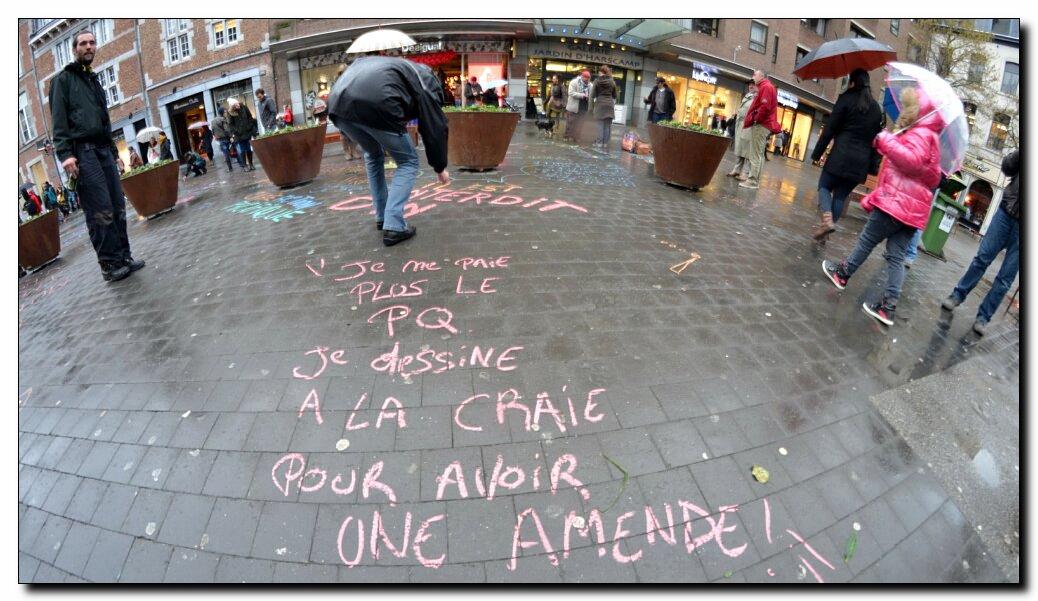 Desigual
JARDIN D'HARSCAMP
EST
INTERDIT
" Je me PAIE
PLUS LE
PQ
Je dessiNE
A LA CRAiE
POUR AVOiR
UNE AMENDE! "